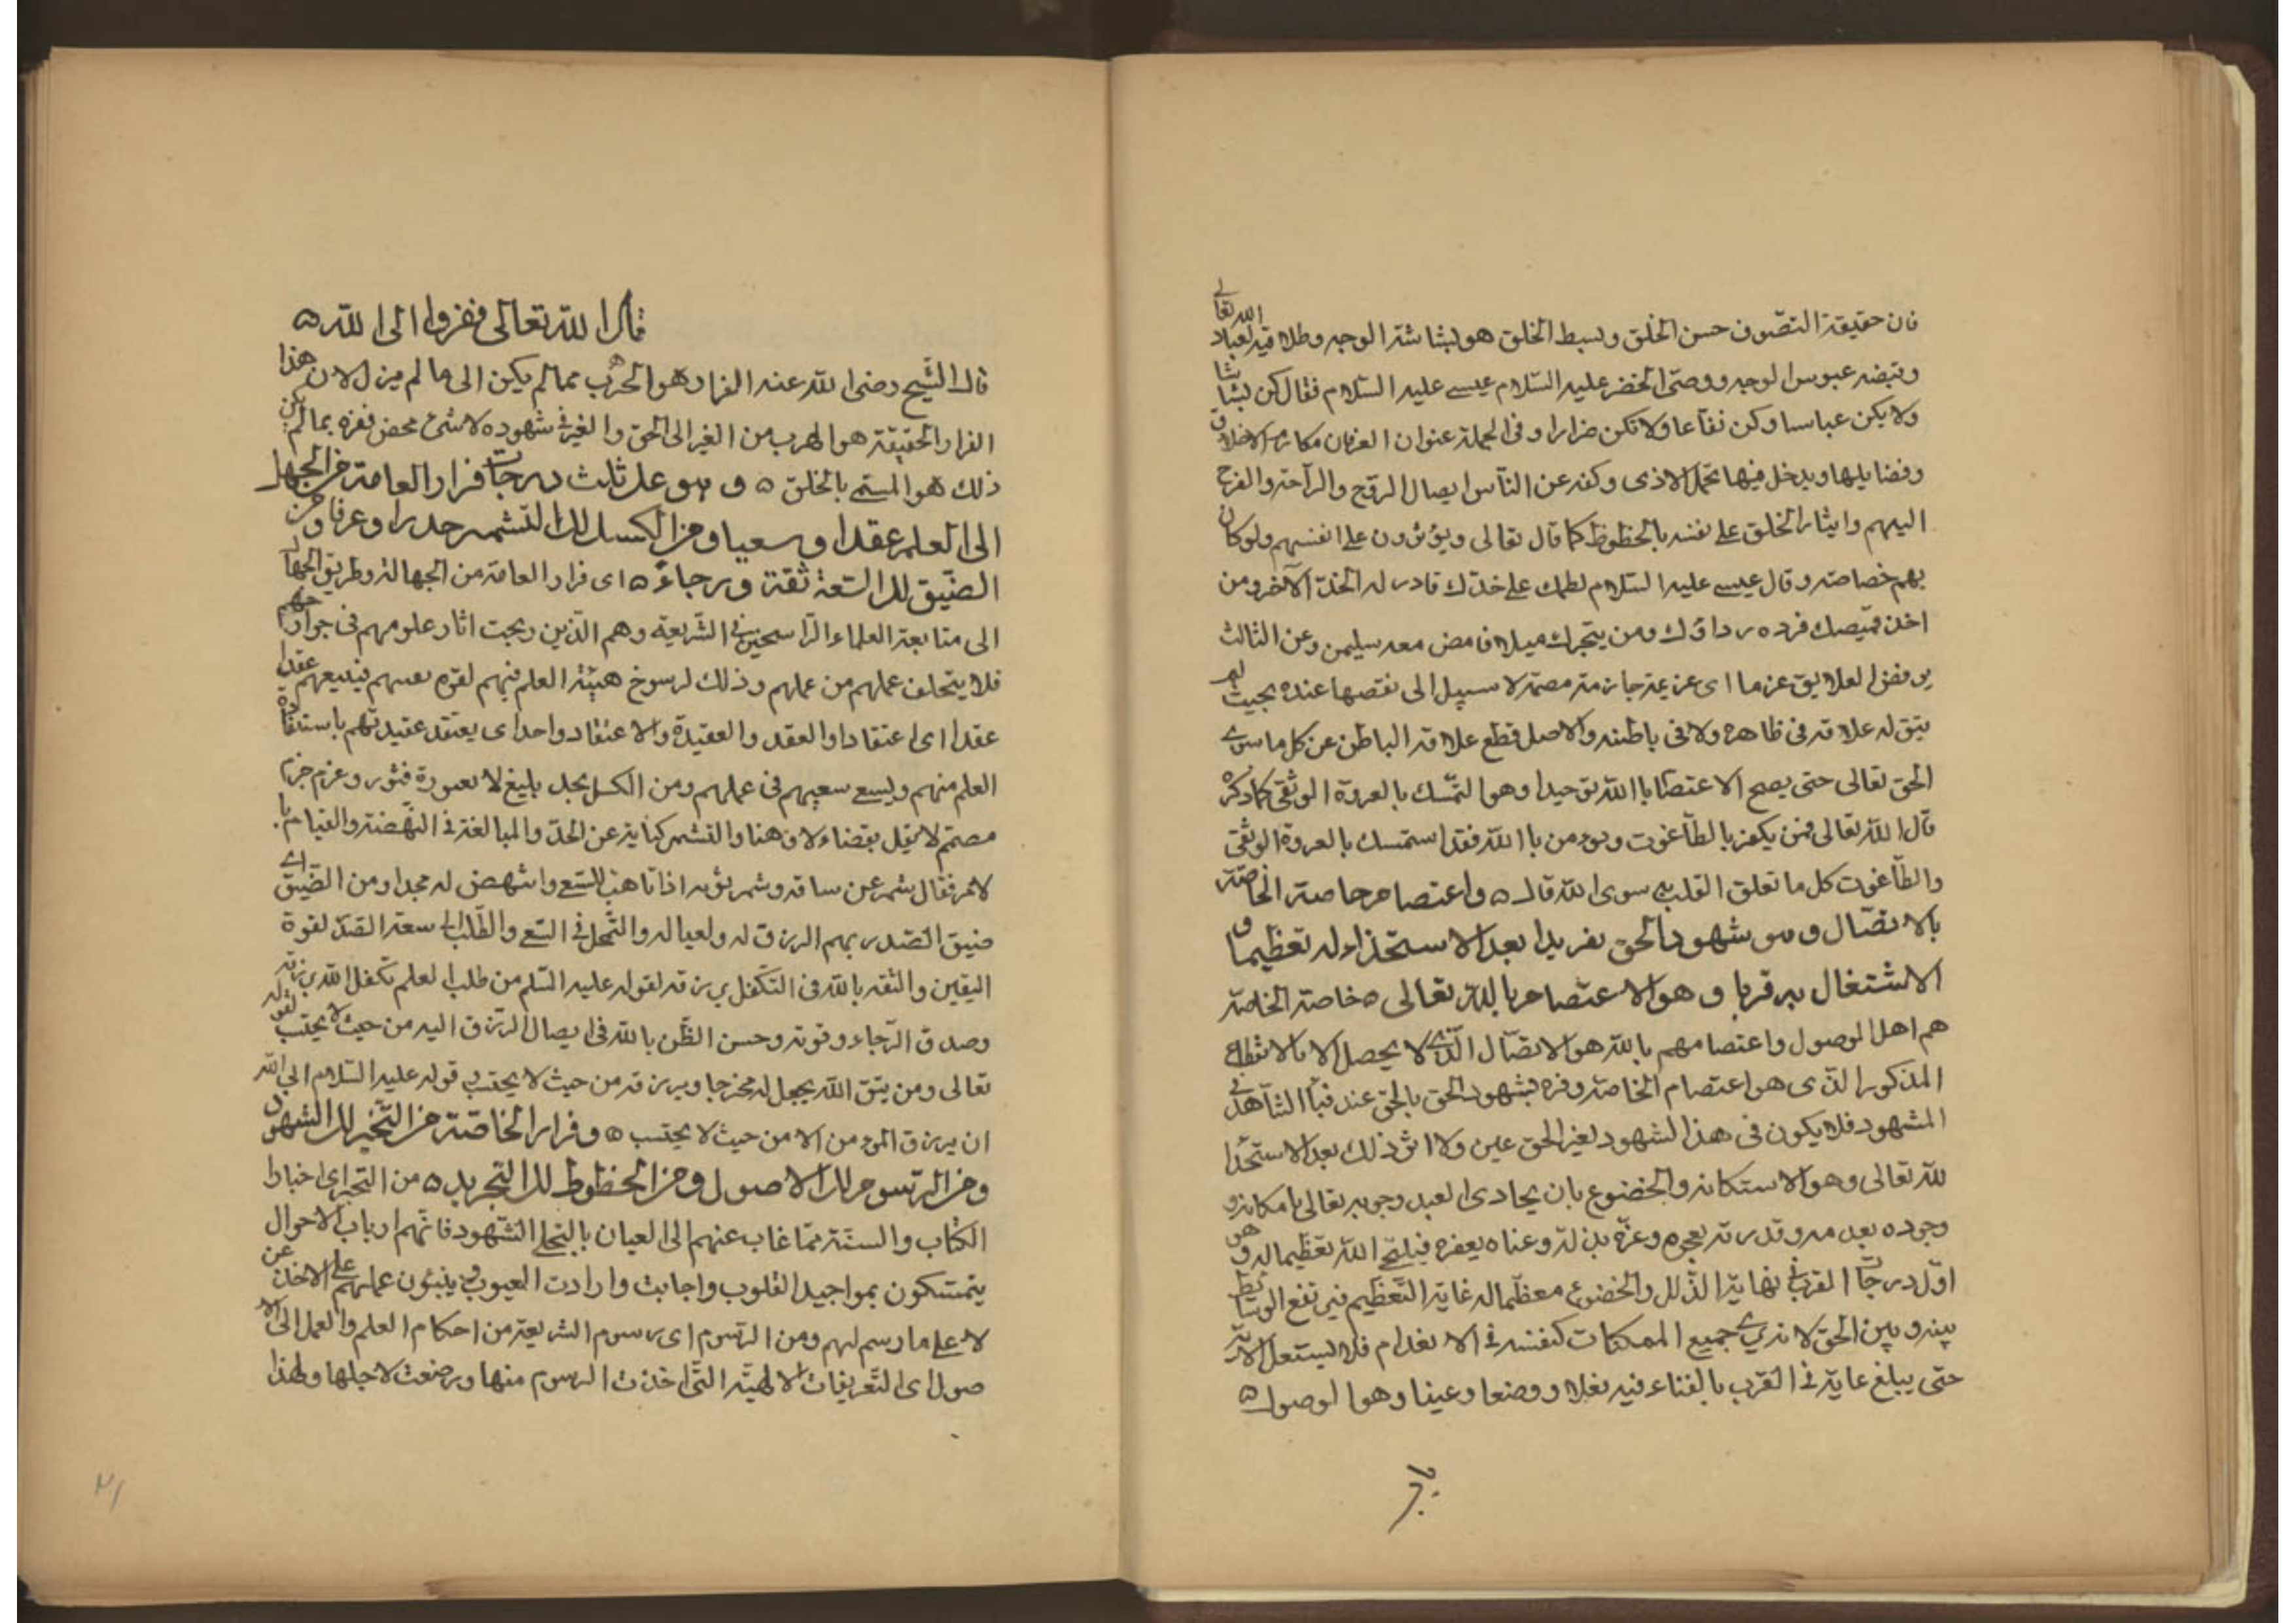 فان حقيقة التصوف حسن الخلق وبسط الخلق هو بشاشة الوجه وطلاقته لعباد الله تعالى
وقبضه عبوس الوجه ووصى الخضر عليه السلام عيسى عليه السلام فقال كن بشاشا
ولا يكن عباسا وكن نفاعا ولا تكن ضرارا وفى الجملة عنوان العرفان مكارم الاخلاق
وفضايلها ويدخل فيها تحمل الاذى وكفه عن الناس ايصال الروح والراحة والفرح
اليهم وايثار الخلق على نفسه بالحظوظ كما قال تعالى ويؤثرون على انفسهم ولو كان
بهم خصاصة وقال عيسى عليه السلام لطمك على خدك فادر له الخد الآخر ومن
اخذ قميصك فرده رداؤك ومن يتجرك ميلا فامض معه سليمن وعن الثالث
برفض العلايق عزما اى عزيمة جازمة مصمة لا سبيل الى نقصها عنده بحيث لم
يبق له علاقة فى ظاهره ولا فى باطنه والاصل قطع علاقة الباطن عن كل ما سوى
الحق تعالى حتى يصح الاعتصام بالله توحيدا وهو التمسك بالعروة الوثقى كما ذكره
قال الله تعالى فمن يكفر بالطاغوت ويؤمن باالله فقد استمسك بالعروة الوثقى
والطاغوت كل ما تعلق القلب به سوى الله قال ۵ واعتصام خاصة الخاصة
بالاتصال وهو شهود الحق تفريدا بعد الاستحذاء له تعظيما و
الاشتغال به قربا وهو الاعتصام بالله تعالى ۵ خاصة الخاصة
هم اهل الوصول واعتصامهم بالله هو الاتصال الذى لا يحصل الا بالانقطاع
المذكور الذى هو اعتصام الخاصة وفره بشهود الحق بالحق عند فناء الشاهد فى
المشهود فلا يكون فى هذا الشهود لغير الحق عين ولا اثر ذلك بعد الاستحذا
لله تعالى وهو الاستكانه والخضوع بان يحاذى العبد وجوبه تعالى بامكانه و
وجوده بعدمه وقدرته بعجزه وعزه بذله وغناه بفقره فيليح الله تعظيما له وهو
اول درجات القرب فى نهاية الذلل والخضوع معظما له غاية التعظيم فيرتفع الوسايط
بينه وبين الحق لانه يرى جميع الممكنات كنفسه فى الانعدام فلا يستعمل الا به
حتى يبلغ غاية فى القرب بالفناء فيه فعلا ووصفا وعينا وهو الوصول ۵
قال الله تعالى ففروا الى الله ۵
قال الشيخ رضى الله عنه الفرار هو الهرب مما لم يكن الى ما لم يزل لان هذا
الفرار الحقيقة هو الهرب من الغير الى الحق والغير فى شهوده لا شئ محض ففره بما لم يكن
ذلك هو المسمى بالخلق ۵ وهو على ثلث درجات فرار العامة من الجهل
الى العلم عقدا وسعيا ومن الكسل الى التشمير حدرا وعرفا ومن
الضيق الى السعة ثقة ورجاء ۵ اى فرار العامة من الجهالة وطريق الجهال
الى متابعة العلماء الراسخين فى الشريعة وهم الذين ربحت اثار علومهم فى جوارحهم
فلا يتخلف عملهم من عملهم وذلك لرسوخ هيئة العلم فيهم لقوه نفسهم فيتبعهم عقدا
عقدا اى اعتقادا والعقد والعقيدة والاعتقاد واحد اى يعتقد عقيدتهم باستفادة
العلم منهم ويسعى سعيهم فى عملهم ومن الكسل بجد بليغ لا بعورة فتور وعزم جزم
مصمم لا يقبل بقضاء لا وهنا والتشمر كناية عن الجد والمبالغة فى النهضة والقيام با.
لامر فقال شمر عن ساقه وشمر ثوبه اذا تاهب للسعى وانتهض له مجدا ومن الضيق اى
ضيق الصدر بهم الرزق له ولعياله والتمحل فى السعى والطلب الى سعة الصدر لقوة
اليقين والثقة بالله فى التكفل برزقه لقوله عليه السلم من طلب العلم تكفل الله برزقه
وصدق الرجاء وقوته وحسن الظن بالله فى ايصال الرزق اليه من حيث لا يحتسب لقوله
تعالى ومن يتق الله يجعل له مخرجا ويرزقه من حيث لا يحتسب قوله عليه السلام ابى الله
ان يرزق المؤمن الا من حيث لا يحتسب ۵ وفرار الخاصة من الخبر الى الشهود
ومن الرسوم الى الاصول ومن الحظوظ الى التجريد ۵ من الخبر اى اخبار
الكتاب والسنة مما غاب عنهم الى العيان بالتجلى الشهود فانهم ارباب الاحوال
يتمسكون بمواجيد القلوب واجابت وارادت العيوب ويبنون عملهم على الاخذ عن
لا على ما رسم لهم ومن الرسوم اى رسوم الشريعة من احكام العلم والعمل الى الا
صول اى التعريفات الالهية التى اخذت الرسوم منها ووضعت لاجلها ولهذا
۳۱